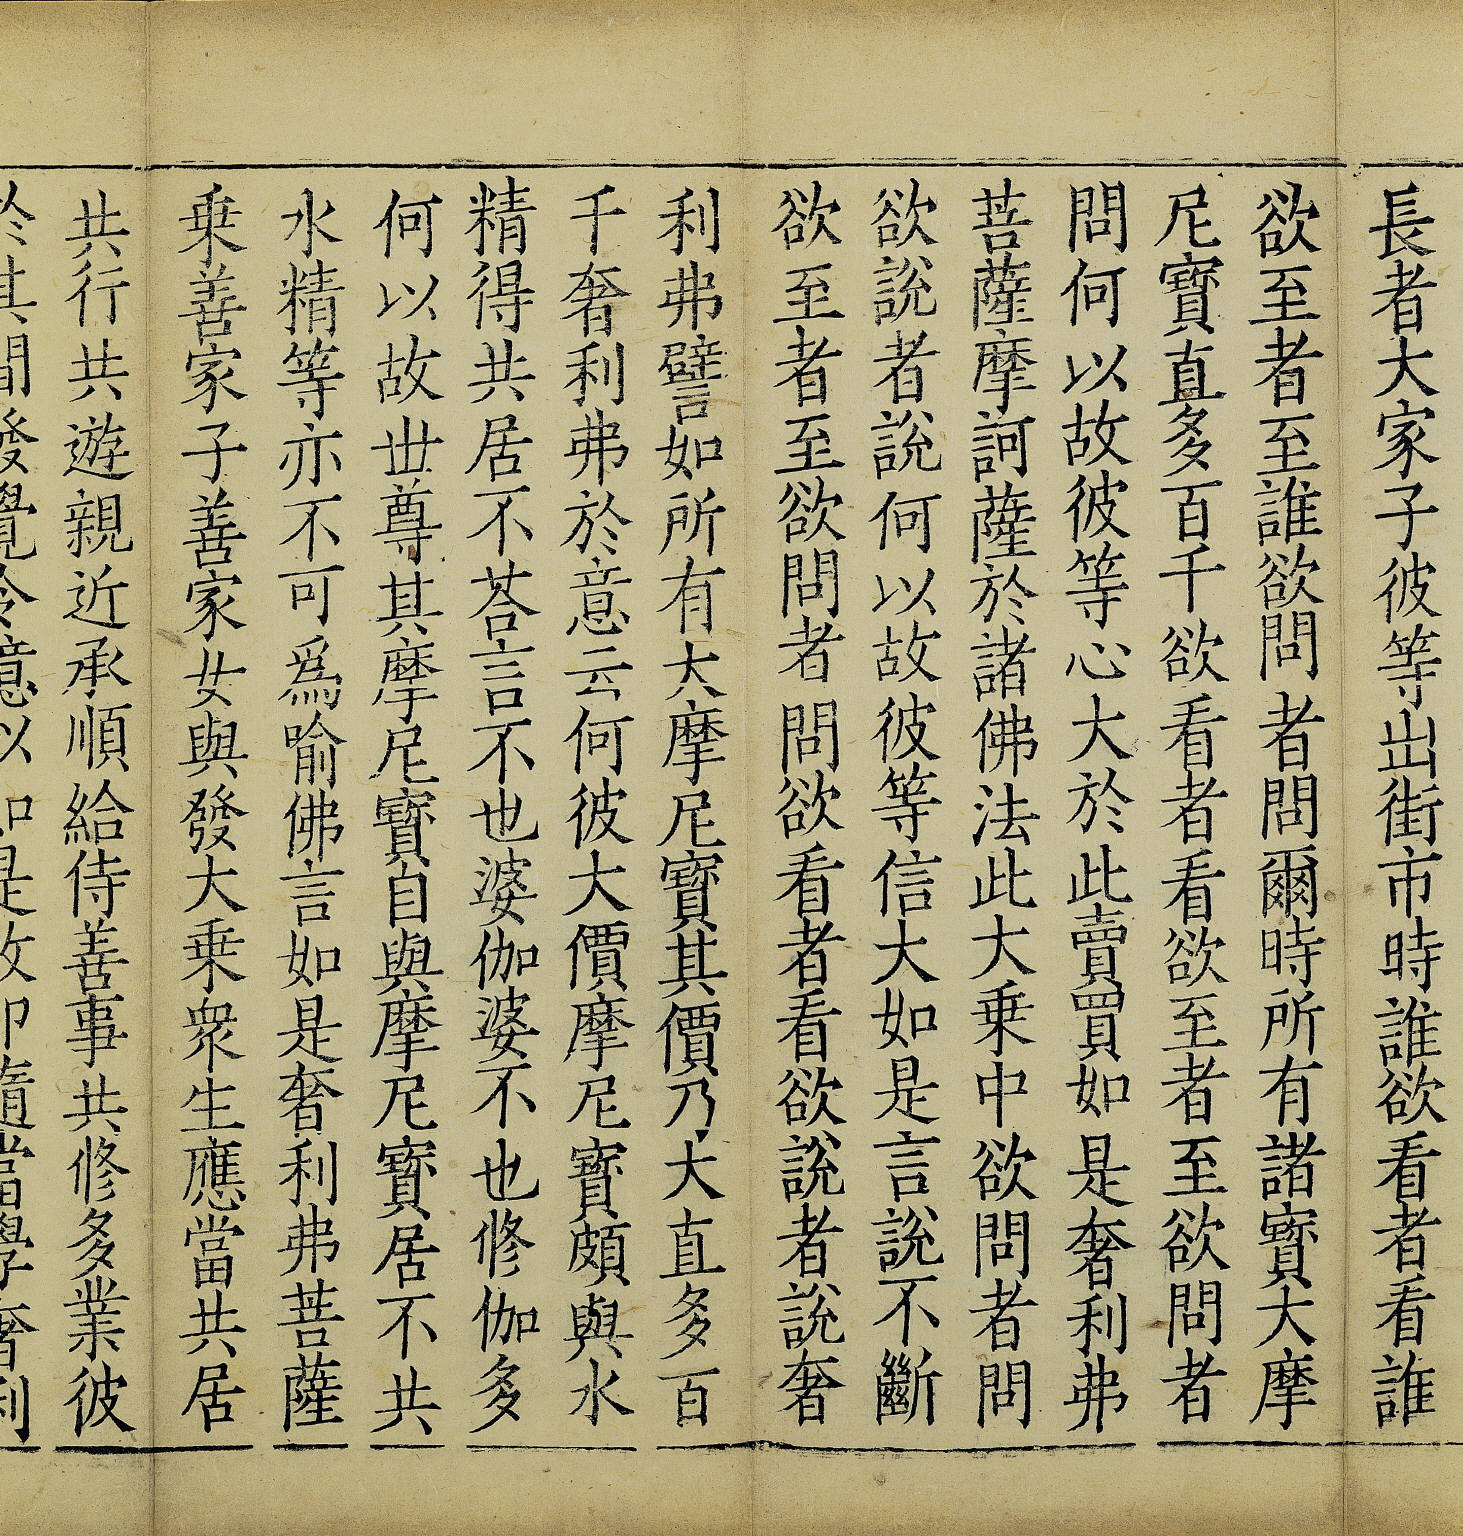 長者大家子彼等出街市時誰欲看者看誰
欲至者至誰欲問者問爾時所有諸寶大摩
尼寶直多百千欲看者看欲至者至欲問者
問何以故彼等心大於此賣買如是奢利弗
菩薩摩訶薩於諸佛法此大乗中欲問者問
欲說者說何以故彼等信大如是言說不斷
欲至者至欲問者問欲看者看欲說者說奢
利弗譬如所有大摩尼寶其價乃大直多百
千奢利弗於意云何彼大價摩尼寶頗與水
精得共居不荅言不也婆伽婆不也修伽多
何以故世尊其摩尼寶自與摩尼寶居不共
水精等亦不可爲喻佛言如是奢利弗菩薩
乗善家子善家女與發大乗衆生應當共居
共行共遊親近承順給侍善事共修多業彼
於其間發覺念意以如是故即隨當學奢利